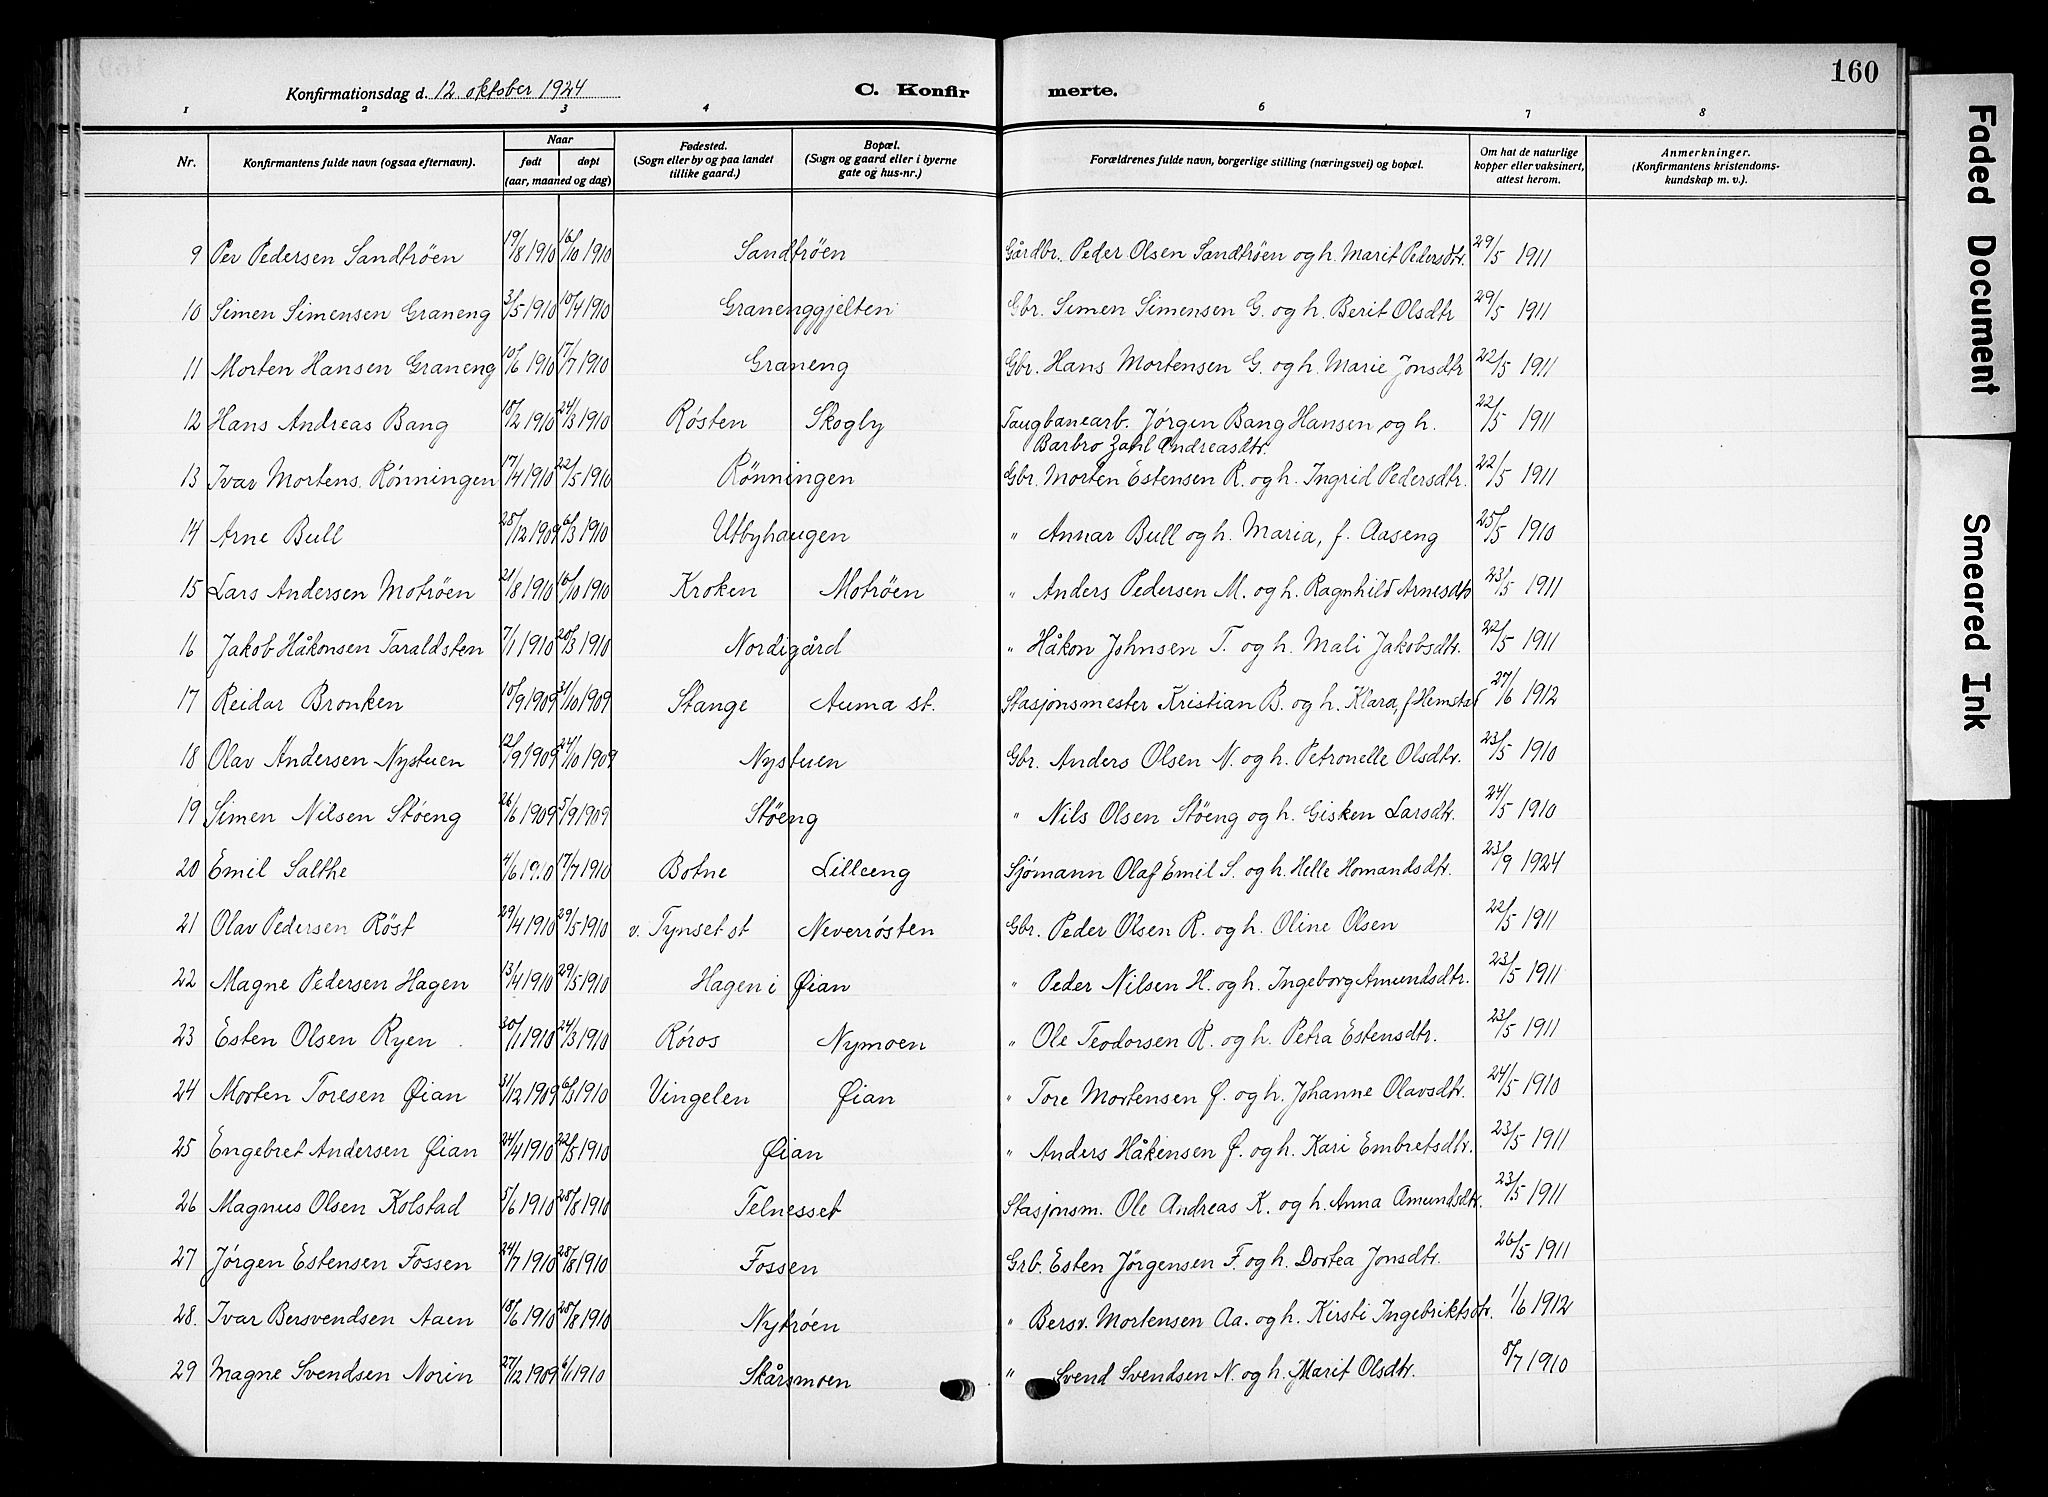 160
Konfirmationsdag d. 12. oktober 1924
C. Konfirmerte.
1 2 3 4 6 7 8
Nr. Konfirmantens fulde navn (ogsaa efternavn). Naar født døpt (aar, maaned og dag) Fødested. (Sogn eller by og paa landet tillike gaard.) Bopæl. (Sogn og gaard eller i byerne gate og hus-nr.) Forældrenes fulde navn, borgerlige stilling (næringsvei) og bopæl. Om hat de naturlige kopper eller vaksinert, attest herom. Anmerkninger. (Konfirmantens kristendomskundskap m. v.).
9 Per Pedersen Sandtrøen 19/8 1910 16/10 1910 Sandtrøen Gårdbr. Peder Olsen Sandtrøen og h. Marit Pedersdtr. 29/5 1911
10 Simen Simensen Graneng 3/5 1910 10/4 1910 Granenggjelten Gbr. Simen Simensen G. og h. Berit Olsdtr 29/5 1911
11 Morten Hansen Graneng 10/6 1910 17/7 1910 Graneng Gbr. Hans Mortensen G. og h. Marie Jonsdtr 22/5 1911
12 Hans Andreas Bang 18/2 1910 24/3 1910 Røsten Skogby Taugbanearb. Jørgen Bang Hansen og h. 22/5 1911
Barbro Zahl Andreasdtr.
13 Ivar Mortens. Rønningen 17/4 1910 22/5 1910 Rønningen Gbr. Morten Estensen R. og h. Ingrid Pedersdtr. 22/5 1911
14 Arne Bull 28/12 1909 6/3 1910 Utbyhaugen " Annar Bull og h. Maria, f. Aaseng 25/5 1910
15 Lars Andersen Motrøen 21/8 1910 16/10 1910 Kroken Motrøen " Anders Pedersen M. og h. Ragnhild Arnesdtr 23/5 1911
16 Jakob Håkonsen Taraldsten 7/1 1910 20/3 1910 Nordigård " Håkon Johnsen T. og h. Mali Jakobsdtr. 22/5 1911
17 Reidar Bronken 10/9 1909 31/10 1909 Stange Auma st. Stasjonsmester Kristian B. og h. Klara, f Hemstad 27/6 1912
18 Olav Andersen Nystuen 12/9 1909 24/10 1909 Nystuen Gbr. Anders Olsen N. og h. Petronelle Olsdtr. 23/5 1910
19 Simen Nilsen Støeng 26/6 1909 5/9 1909 Støeng " Nils Olsen Støeng og h. Gisken Larsdtr. 24/5 1910
20 Emil Salthe 4/6 1910 17/7 1910 Botne Lilleeng Sjømann Olaf Emil S. og h. Helle Homandsdtr. 23/9 1924
21 Olav Pedersen Røst 29/4 1910 29/5 1910 v. Tynset st Neverrøsten Gbr. Peder Olsen R. og h. Oline Olsen 22/5 1911
22 Magne Pedersen Hagen 13/4 1910 29/5 1910 Hagen i Øian " Peder Nilsen H. og h. Ingeborg Amundsdtr. 23/5 1911
23 Esten Olsen Ryen 30/1 1910 24/3 1910 Røros Nymoen " Ole Teodorsen R. og h. Petra Estensdtr. 23/5 1911
24 Morten Toresen Øian 31/12 1909 6/3 1910 Vingelen Øian " Tore Mortensen Ø. og h. Johanne Olavsdtr. 24/5 1910
25 Engebret Andersen Øian 24/4 1910 22/5 1910 Øian " Anders Håkensen Ø. og h. Kari Embretsdtr. 23/5 1911
26 Magnus Olsen Kolstad 5/6 1910 28/8 1910 Telnesset Stasjonsm. Ole Andreas K. og h. Anna Amundsdtr. 23/5 1911
27 Jørgen Estensen Fossen 24/7 1910 28/8 1910 Fossen Grb. Esten Jørgensen F. og h. Dortea Jonsdtr. 26/5 1911
28. Ivar Bersvendsen Aaen 18/6 1910 28/8 1910 Nytrøen " Bersv. Mortensen Aa. og h. Kirsti Ingebriktsdtr. 1/6 1912
29 Magne Svendsen Norin 27/12 1909 6/1 1910 Skårsmoen " Svend Svendsen N. og h. Marit Olsdtr. 8/7 1910
Faded Document
Smeared Ink